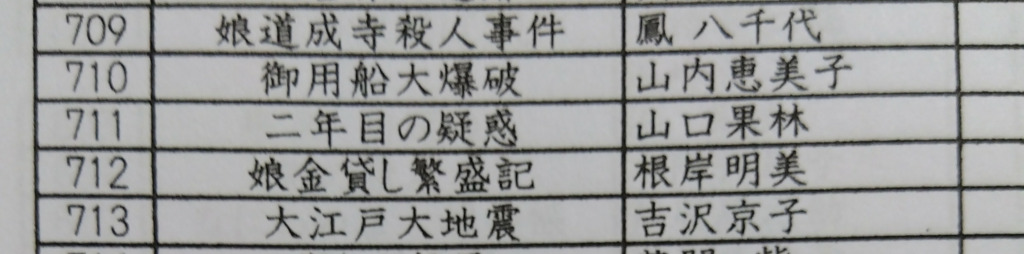 709 娘道成寺殺人事件 鳳 八千代
710 御用船大爆破 山内恵美子
711 二年目の疑惑 山口果林
712 娘金貸し繁盛記 根岸明美
713 大江戸大地震 吉沢京子